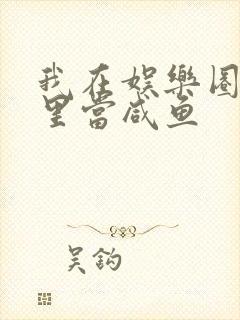 我在娱樂圈
里當咸魚
吴鈎